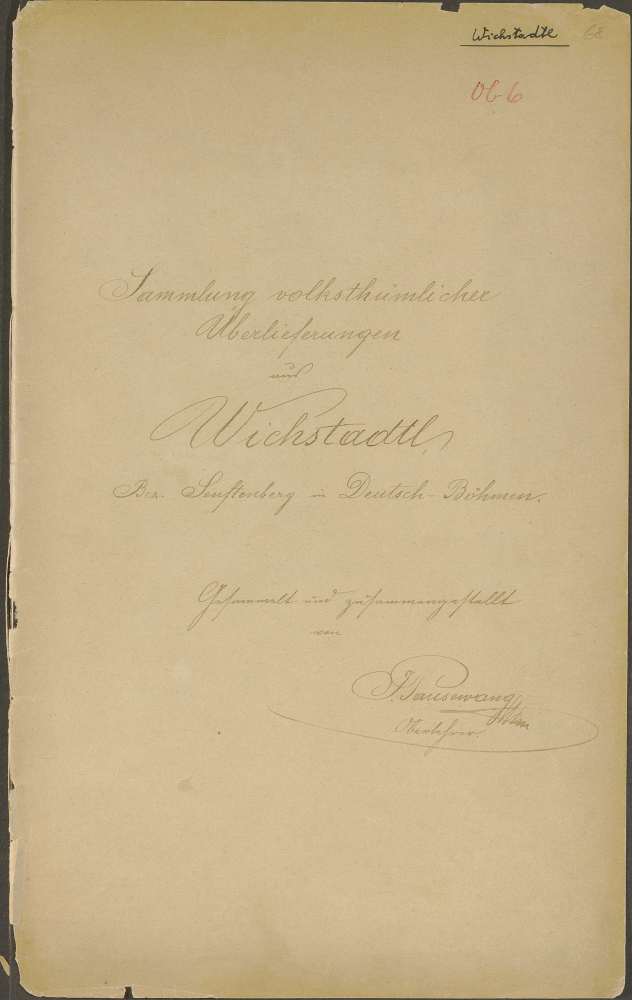 Wichstadtl 68
Ob 6
Sammlung volksthümlicher
Überlieferungen
aus
Wichstadtl,
Bez. Senftenberg in Deutsch-Böhmen.
Gesammelt und zusammengestellt
von
J. Pauswang
Oberlehrer.